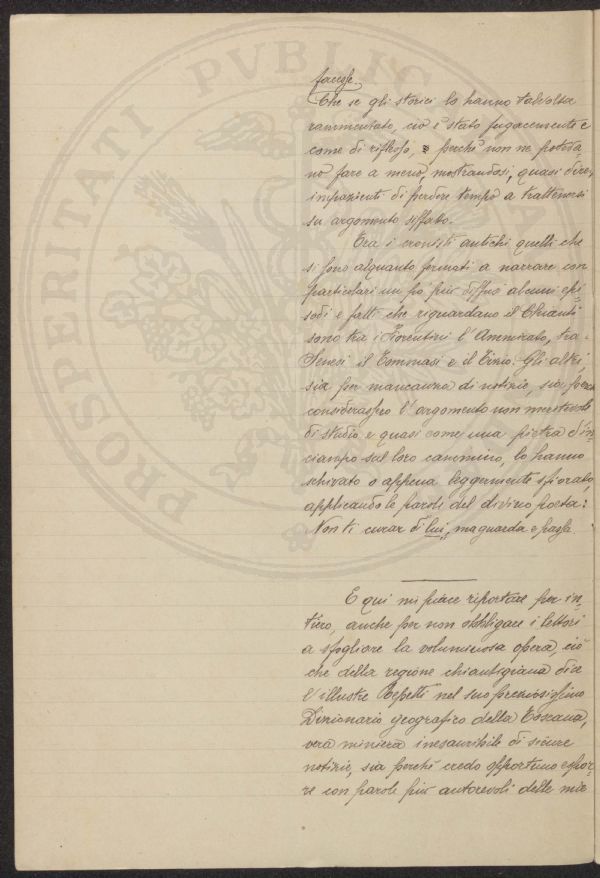 PROSPERITATI PVBLICAE
facesse.
Che se gli storici lo hanno talvolta
rammentato, ciò è stato fugacemente e
come di riflesso, e perchè non ne poteva-
no fare a meno, mostrandosi, quasi direi,
impazienti di perdere tempo a trattenersi
su argomento siffatto.
Tra i cronisti antichi quelli che
si sono alquanto fermati a narrare con
particolari un pò più diffusi alcuni epi-
sodi e fatti che riguardano il Chianti
sono tra i Fiorentini l'Ammirato, tra i
Senesi il Tommasi e il Tizio. Gli altri,
sia per mancanza di notizie, sia perchè
considerassero l'argomento non meritevole
di studio e quasi come una pietra d'in-
ciampo sul loro cammino, lo hanno
schivato o appena leggermente sfiorato,
applicando le parole del divino poeta:
Non ti curar di lui, ma guarda e passa.
E qui mi piace riportare per in-
tiero, anche per non obbligare i lettori
a sfogliare la voluminosa opera, ciò
che della regione chiantigiana dice
l'illustre Repetti nel suo preziosissimo
Dizionario geografico della Toscana,
vera miniera inesauribile di sicure
notizie, sia perchè credo opportuno espor-
re con parole più autorevoli delle mie